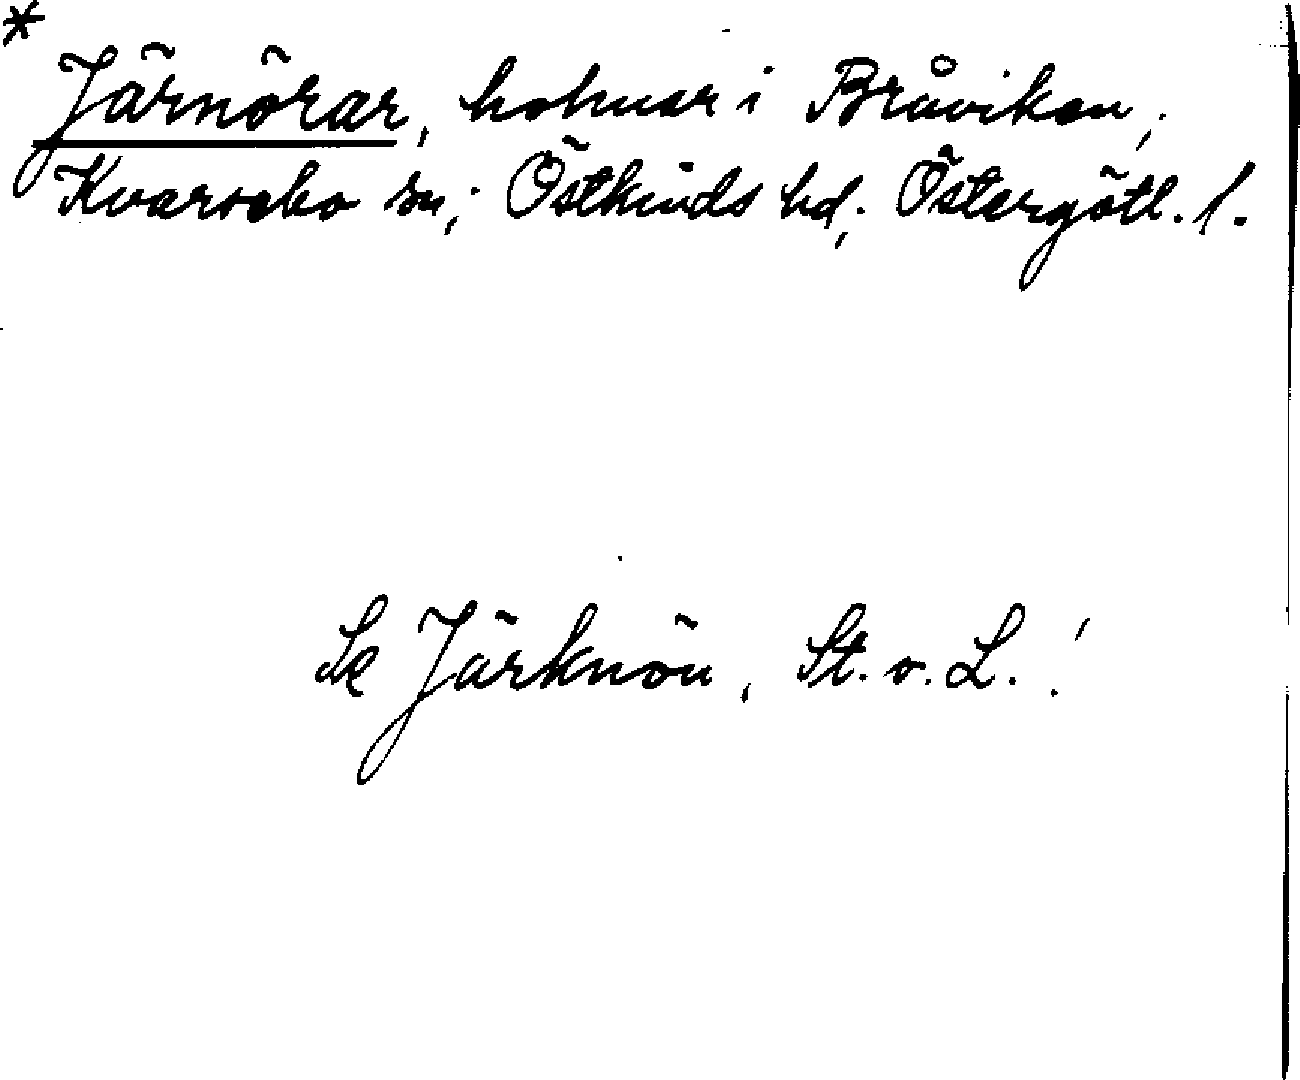 * Järnörar, holmar i Bråviken,
Kvarsebo sn, Östkinds hd, Östergötl. l.
Se Järknön, St. o. L.!